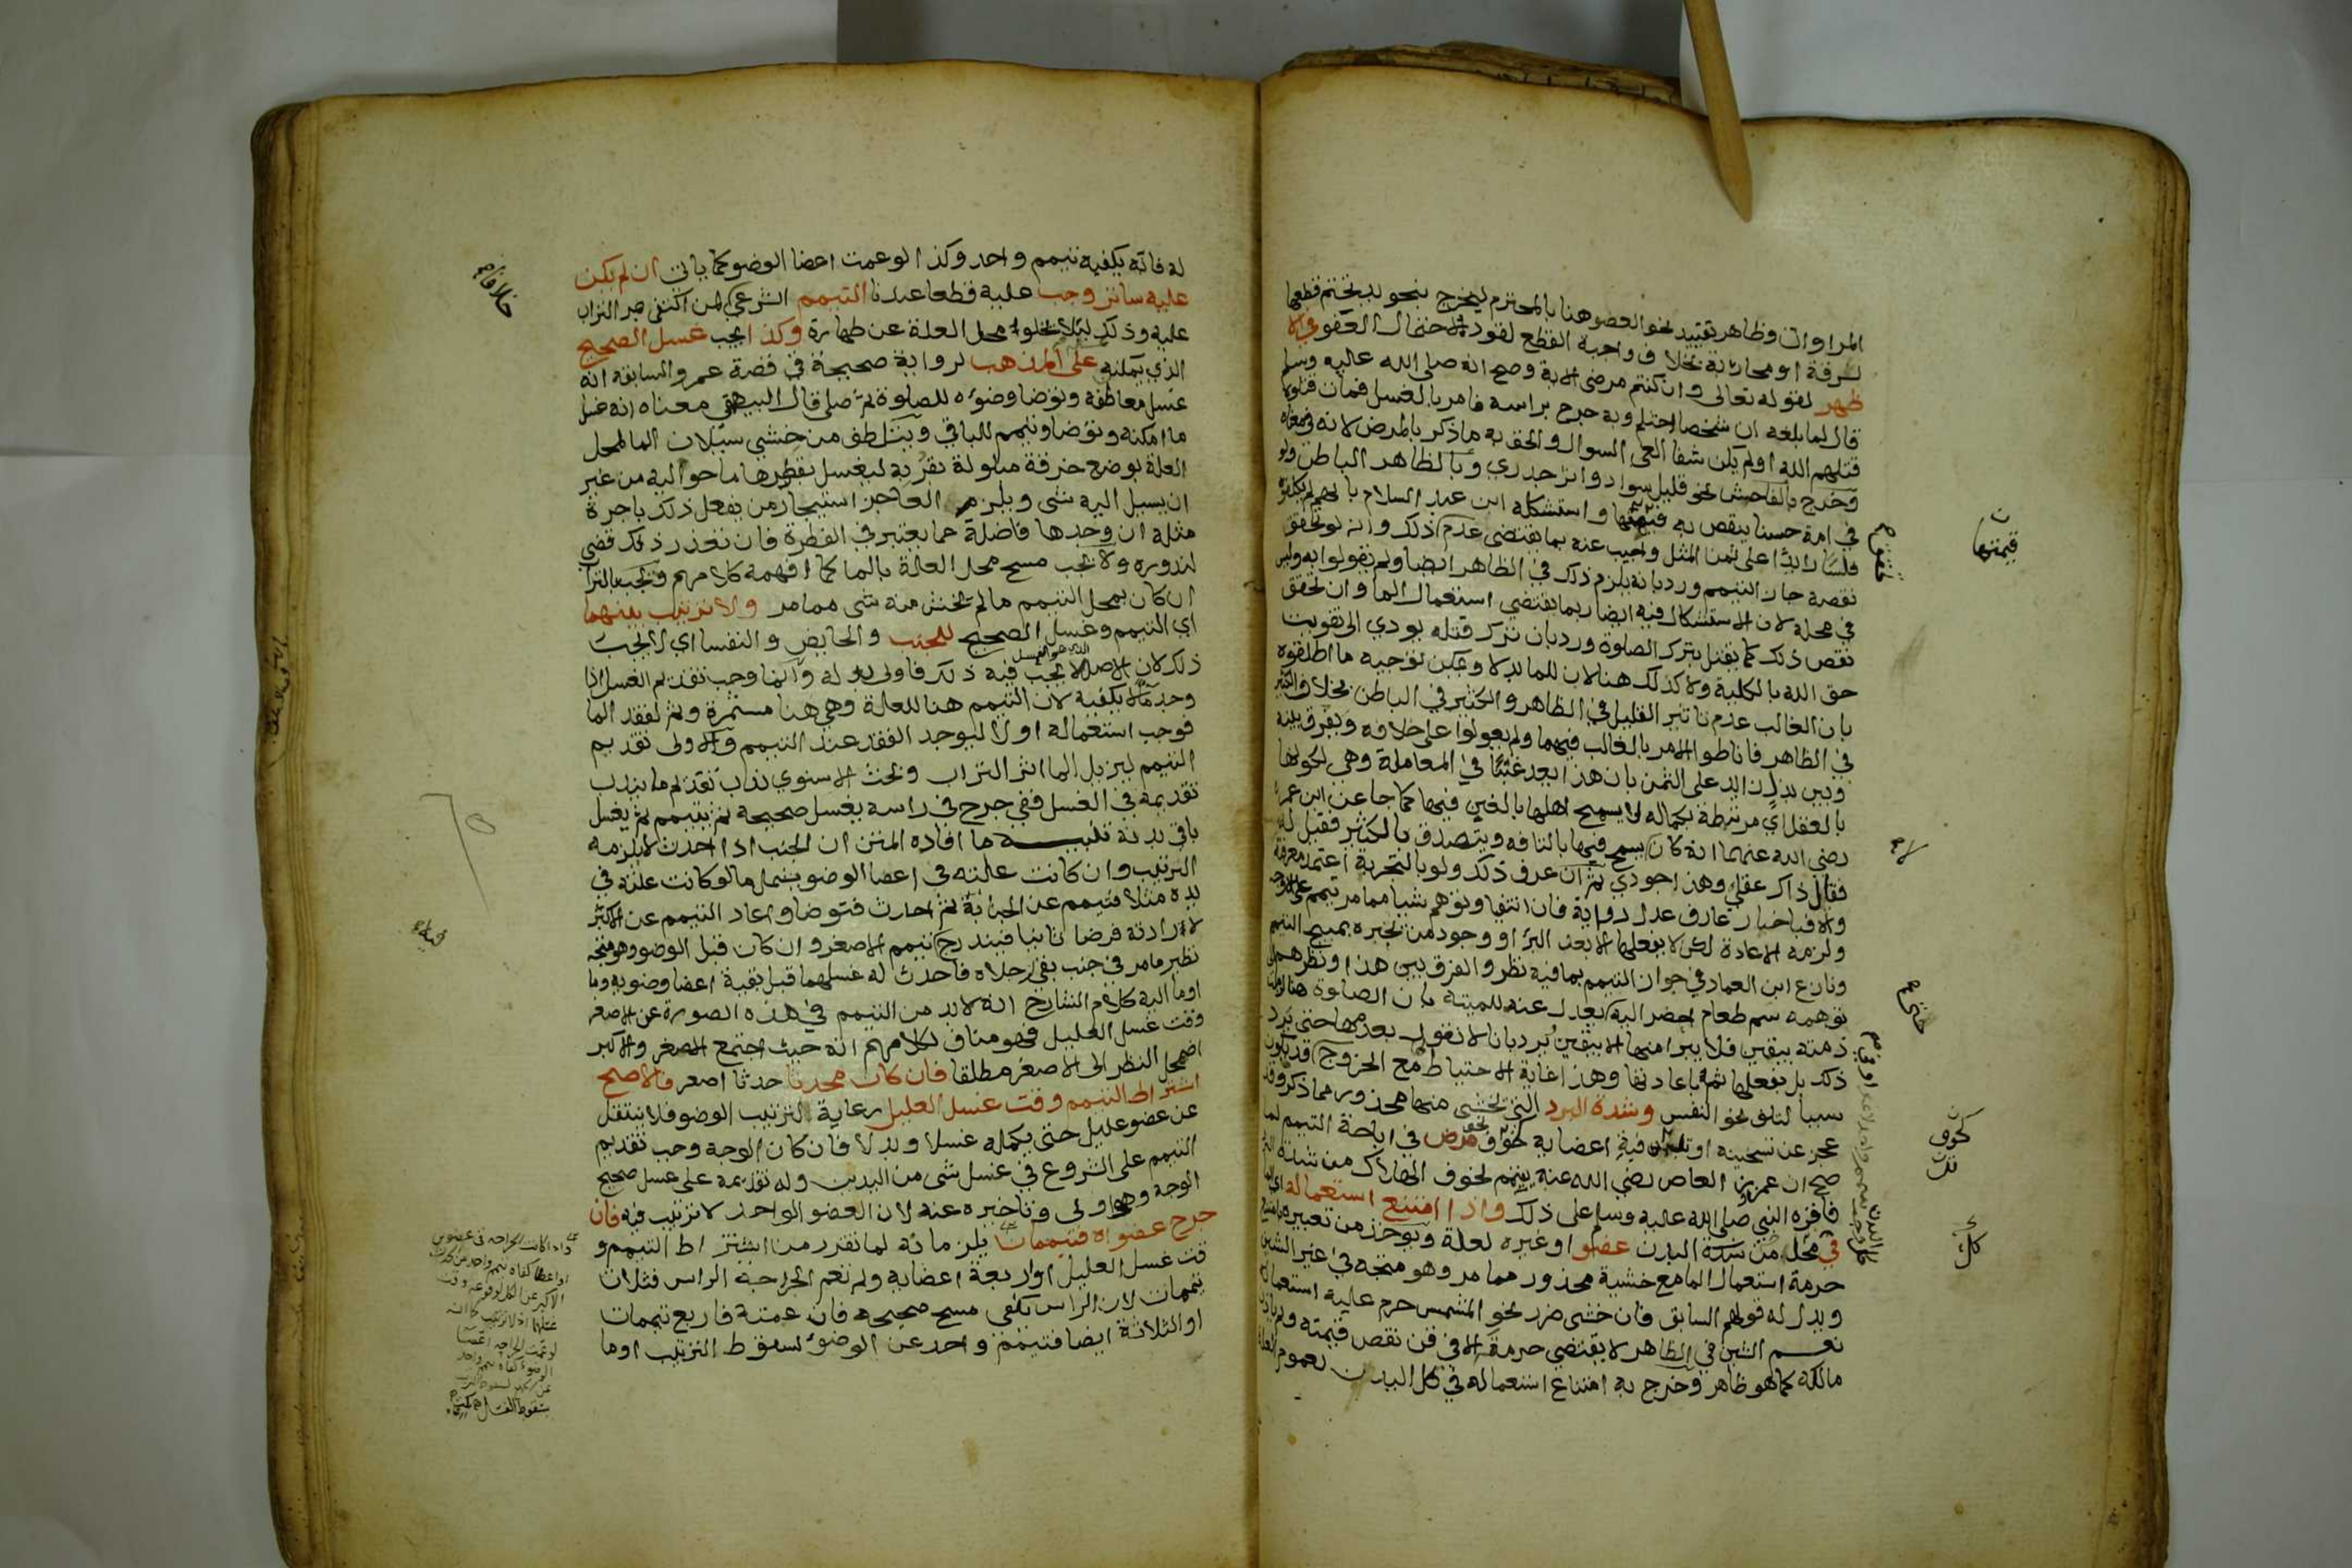 المراوان وظاهر تقييد نحو العضو هنا بالمحترم ليخرج نحو يد تحتم قطعها
لسرقة او محاربة بخلاف واجبة القطع لقود لاحتمال العفو في الا
ظهر لقوله تعالى وان كنتم مرضى الاية وصح انه صلى الله عليه وسلم
قال لما بلغه ان شخصا احتلم وبه جرح براسه فامر بالغسل فمات قتلوه
قتلهم الله اولم يكن شفا العي السوال والحق به ما ذكر بالمرض لانه في معناه
وخرج بالفاحش نحو قليل سواد واثر جدري وبالظاهر الباطن ولو
في امة حسنا ينقص به قيمتها واستشكله ابن عبد السلام بانهم لم يكلفوه
فلسا زايدا على ثمن المثل واجيب عنه بما يقتضي عدم ذلك وانه لو تحقق
نقصه جاز التيمم ورد بانه يلزم ذلك في الظاهر ايضا ولم يقولوا به وليس
في محله لان الاستشكال فيه ايضا ربما يقتضي استعمال الما وان تحقق
نقص ذلك كما يقتل بترك الصلوة ورد بان ترك قتله يودي الى تفويت
حق الله بالكلية ولا كذلك هنا لان للما بدلا ويمكن توجيه ما اطلقوه
بان الغالب عدم تاثير القليل في الظاهر والكثير في الباطن بخلاف الكثير
في الظاهر فاناطوا الامر بالغالب فيهما ولم يعولوا على خلافه ويفرق بينه
وبين بذل زايد على الثمن بان هذا يعد غبنا في المعاملة وهي لكونها
بالعقل اي مرتبطة بكماله لا يسمح اهلها بالغبن فيها كما جا عن ابن عمر
رضي الله عنهما انه كان يسمح فيها بالتافه ويتصدق بالكثير فقيل له
فقال ذاك عقلي وهذا جودي ثم ان عرف ذلك ولو بالتجربة اعتمد معرفة
والا فباخبار عارف عدل رواية فان انتفيا وتوهم شيا مما مر تيمم على الاوجه
ولزمه الاعادة لكن لا يفعلها الا بعد البرا او وجود من يخبره بمبيح التيمم
ونازع ابن العماد في جواز التيمم بما فيه نظر والفرق بين هذا ونظرهم
توهمه سم طعام احضر اليه يعدل عنه للميتة بان الصلوة هنا
ذمته بيقين فلا يبرا منها الا بيقين يرد بانا لا نقول بعدمها حتى يرد
ذلك بل يفعلها ثم باعادتها وهذا غاية الاحتياط مع الخروج قد يكون
سببا لتلف نحو النفس وشدة البرد التي تخشى منها محذور مما ذكر وقد
عجز عن تسخينه او فيه اعضايه كخوف مرض في اباحة التيمم لما
صح ان عمرو بن العاص رضي الله عنه تيمم لخوف الهلاك من شدة
فاقره النبي صلى الله عليه وسلم على ذلك واذا امتنع استعماله اي الما
في محل من البدن عضو او غيره لعلة ويوخذ من تعبيره بامتنع
حرمة استعمال الما مع خشية محذور مما مر وهو متجه في غير الشين
ويدل له قولهم السابق فان خشي ضرر نحو المشمس حرم عليه استعماله
نعم الشين في الظاهر لا يقتضي حرمة الا في قن نقص قيمته ولم ياذن
مالكه كما هو ظاهر وخرج به امتناع استعماله في كل البدن لعموم العلة
قيمتها
كخوف
تلف
كل
له فانه يكفيه تيمم واحد وكذا لو عمت اعضا الوضو كما ياتي ان لم يكن
عليه ساتر وجب عليه قطعا عندنا التيمم الشرعي لمن اكتفى بمر التراب
عليه وذلك لئلا يخلوا محل العلة عن طهارة وكذا يجب غسل الصحيح
الذي يمكنه على المذهب لرواية صحيحة في قصة عمرو السابقة انه
غسل معاطفه وتوضا وضوءه للصلوة ثم صلى قال البيهقي معناه انه غسل
ما امكنه وتوضا وتيمم للباقي ويتلطف من خشي سيلان الما لمحل
العلة بوضع خرقة مبلولة بقربه ليغسل بقطرها ما حواليه من غير
ان يسيل اليه شي ويلزم العاجز استيجار من يفعل ذلك باجرة
مثله ان وجدها فاضلة عما يعتبر في الفطرة فان تعذر ذلك قضى
لندوره ولا يجب مسح محل العلة بالما كما افهمه كلامهم ويجب بالتراب
ان كان بمحل التيمم ما لم يخش منه شي مما مر ولا ترتيب بينهما
اي التيمم وغسل الصحيح للجنب والحايض والنفسا اي لا يجب
ذلك لان الاصل لا يجب فيه ذلك فاولى بدله وانما وجب تقديم الغسل اذا
الذي هو الغسل
وجد ما لا يكفيه لان التيمم هنا للعلة وهي هنا مستمرة وثم لفقد الما
فوجب استعماله اولا ليوجد الفقد عند التيمم والاولى تقديم
التيمم ليزيل الما اثر التراب وبحث الاسنوي ندب تقديم ما يندب
تقديمه في الغسل ففي جرح في راسه يغسل صحيحه ثم يتيمم ثم يغسل
باقي بدنه تنبيه ما افاده المتن ان الجنب اذا احدث لا يلزمه
الترتيب وان كانت علته في اعضا الوضو يشمل ما لو كانت علته في
يده مثلا فتيمم عن الجنابة ثم احدث فتوضا واعاد التيمم عن الاكبر
لارادته فرضا ثانيا فيندرج تيمم الاصغر وان كان قبل الوضو وهو متجه
نظير ما مر في جنب بقي رجلاه فاحدث له غسلهما قبل بقية اعضا وضويه وما
اوما اليه كلام الشارح انه لا بد من التيمم في هذه الصورة عن الاصغر
وقت غسل العليل فهو مناف لكلامهم انه حيث اجتمع الاصغر والاكبر
اضمحل النظر الى الاصغر مطلقا فان كان محدثا حدثا اصغر فالاصح
اشتراط التيمم وقت غسل العليل رعاية لترتيب الوضو فلا ينتقل
عن عضو عليل حتى يكمله غسلا وبدلا فان كان الوجه وجب تقديم
التيمم على الشروع في غسل شي من اليدين وله تقديمه على غسل صحيح
الوجه وهو اولى وتاخيره عنه لان العضو الواحد لا ترتيب فيه فان
جرح عضواه فتيممان يلزمانه لما تقرر من اشتراط التيمم و
قت غسل العليل او اربعة اعضايه ولم تعم الجراحة الراس فثلاث
تيممات لان الراس يكفي مسح صحيحه فان عمته فاربع تيممات
او الثلاثة ايضا فتيمم واحد عن الوضوء لسقوط الترتيب اوما